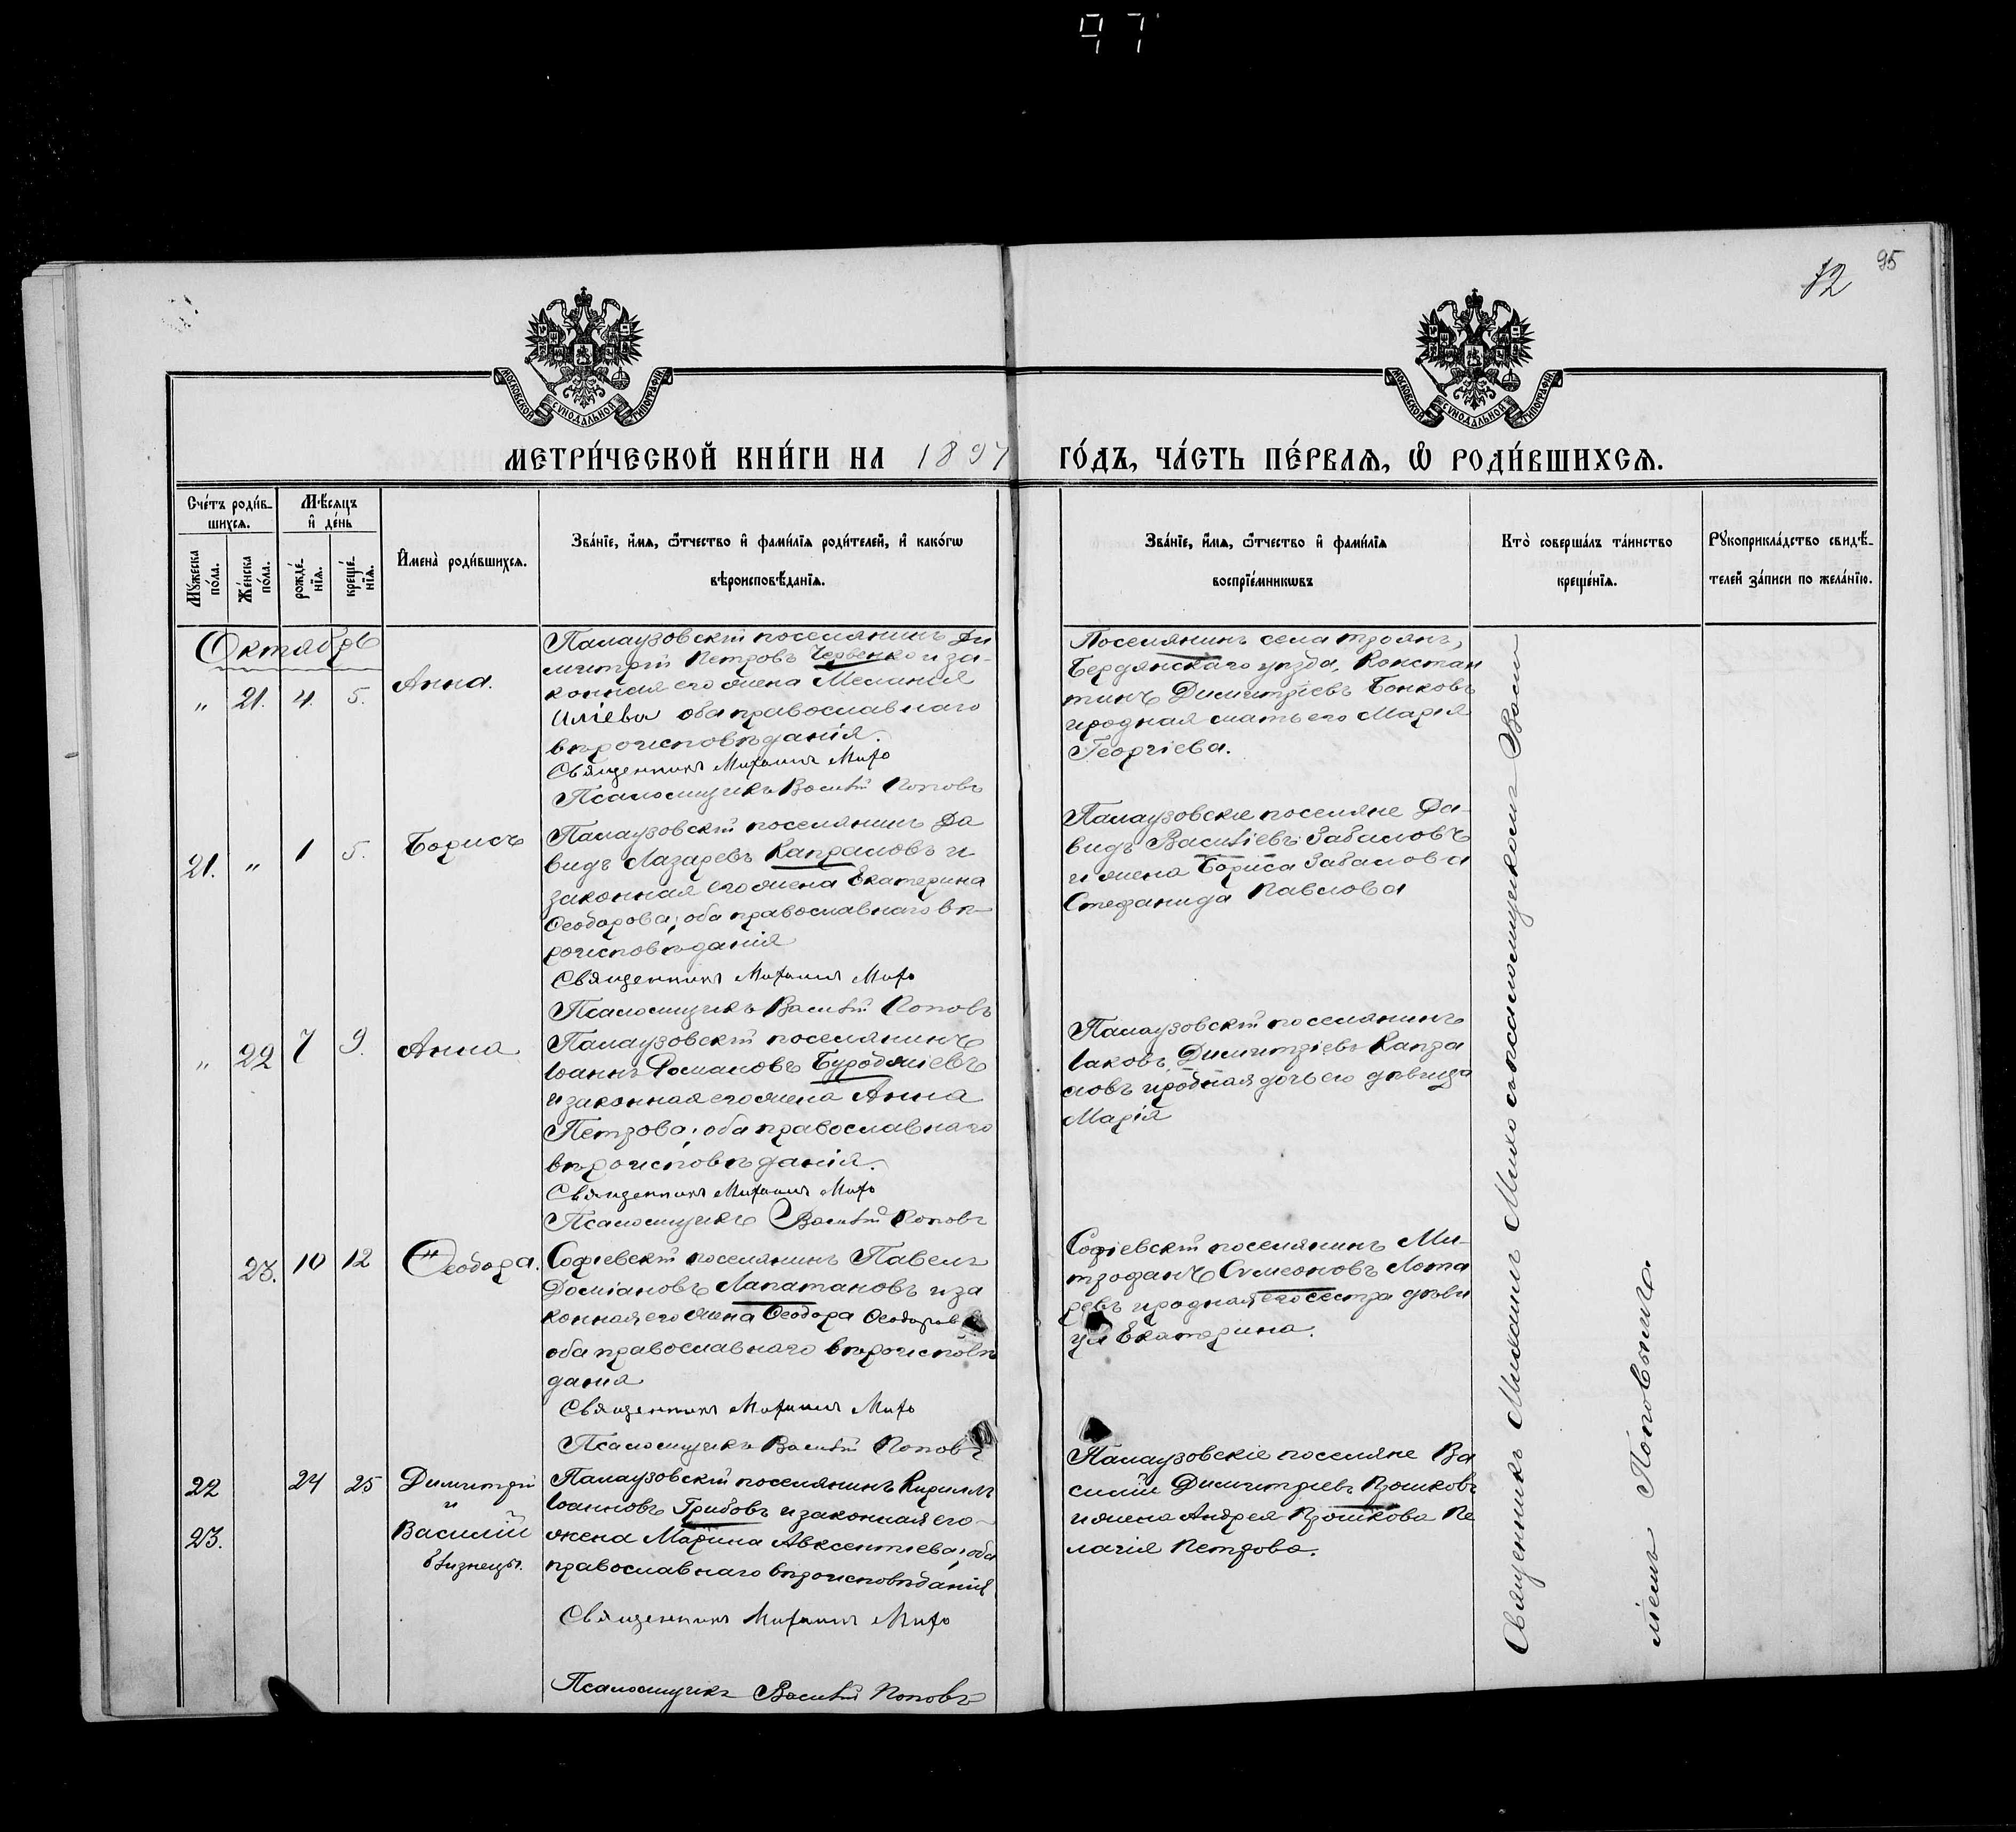 97
95
72
МОСКОВСКОЙ СУНОДАЛЬНОЙ ТИПОГРАФІИ
МОСКОВСКОЙ СУНОДАЛЬНОЙ ТИПОГРАФІИ
МЕТРИ́ЧЕСКОЙ КНИ́ГИ НА 1897 ГО́ДЪ, ЧА́СТЬ ПЕ́РВАѦ, Ѡ РОДИ́ВШИХСѦ.
Сче́тъ роди́в-
шихсѧ.
Мѣ́сѧцъ
и҆ де́нь
Мꙋ́жеска
по́ла.
Же́нска
по́ла.
рожде́-
нїѧ.
креще́-
нїѧ.
И҆мена̀ роди́вшихсѧ.
Зва́нїе, и҆́мѧ, ѻ҆́тчество и҆ фами́лїѧ роди́телей, и҆ како́гѡ
вѣроисповѣ́данїѧ.
Зва́нїе, и҆́мѧ, ѻ҆́тчество и҆ фами́лїѧ
воспрїе́мникѡвъ
Кто̀ соверша́лъ та́инство
креще́нїѧ.
Рꙋкоприкла́дство свидѣ́-
телей за́писи по жела́нїю.
Октябрь
„ 21. 4. 5. Анна.
Палаузовскій поселянинъ Ди
митрій Петровъ Червенко и за-
конная его жена Меланія
Иліева оба православнаго
вѣроисповѣданія.
Священникъ Михаилъ Михо
Псаломщикъ Василій Поповъ
Поселянинъ села Троянъ,
Бердянскаго уѣзда, Констан
тинъ Димитріевъ Бонковъ
и родная мать его Марія
Георгіева.
21. „ 1 5. Борисъ
Палаузовскій поселянинъ Да
видъ Лазаревъ Капраловъ и
законная его жена Екатерина
Ѳеодорова; оба православнаго вѣ-
роисповѣданія
Священникъ Михаилъ Михо
Псаломщикъ Василій Поповъ
Палаузовскіе поселяне Да-
видъ Василіевъ Забаловъ
и жена Бориса Забалова
Стефанида Павлова
„ 22 7 9. Анна
Палаузовскій поселянинъ
Іоаннъ Романовъ Бурбджіевъ
и законная его жена Анна
Петрова; оба православнаго
вѣроисповѣданія.
Священникъ Михаилъ Михо
Псаломщикъ Василій Поповъ
Палаузовскій поселянинъ
Іаковъ Димитріевъ Капра
ловъ и родная дочь его дѣвица
Марія
23. 10 12 Ѳеодора.
Софіевскій поселянинъ Павелъ
Доміановъ Лапатановъ и за
конная его жена Ѳеодора Ѳеодоров
оба православнаго вѣроисповѣ
данія
Священникъ Михаилъ Михо
Псаломщикъ Василій Поповъ
Софіевскій поселянинъ Ми-
трофанъ Симеоновъ Лота
ревъ и родная его сестра дѣви
ца Екатерина.
22 24 25 Димитрій
и
23. Василій
близнецы.
Палаузовскій поселянинъ Кириллъ
Іоанновъ Грибовъ и законная его
жена Марина Авксентіева; оба
православнаго вѣроисповѣданія
Священникъ Михаилъ Михо
Псаломщикъ Василій Поповъ
Палаузовскіе поселяне Ва
силій Димитріевъ Прошковъ
и жена Андрея Прошкова Пе
лагія Петрова.
Священникъ Михаилъ Михо съ псаломщикомъ Васи
ліемъ Поповымъ.